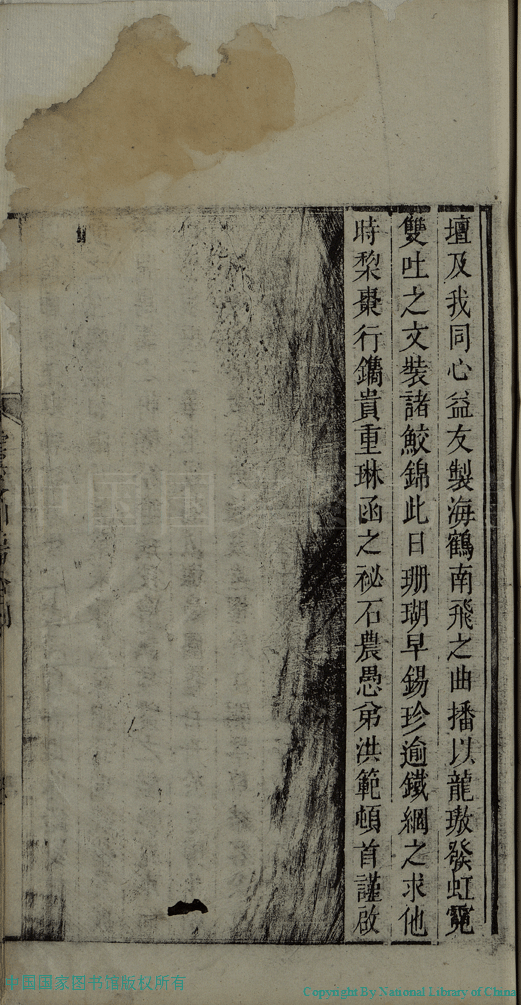 壇及我同心益友製海鶴南飛之曲播以龍璈發虹霓
雙吐之文裝諸鮫錦此日珊瑚早錫珍逾鐵網之求他
時棃棗行鐫貴重琳函之祕石農愚弟洪範頓首謹啟
中国国家图书馆版权所有
Copyright By National Library of China